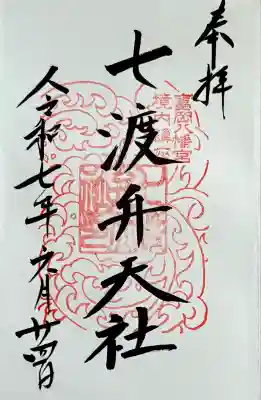 奉拝
富岡八幡宮
境内
七渡弁天社
令和七年六月廿四日